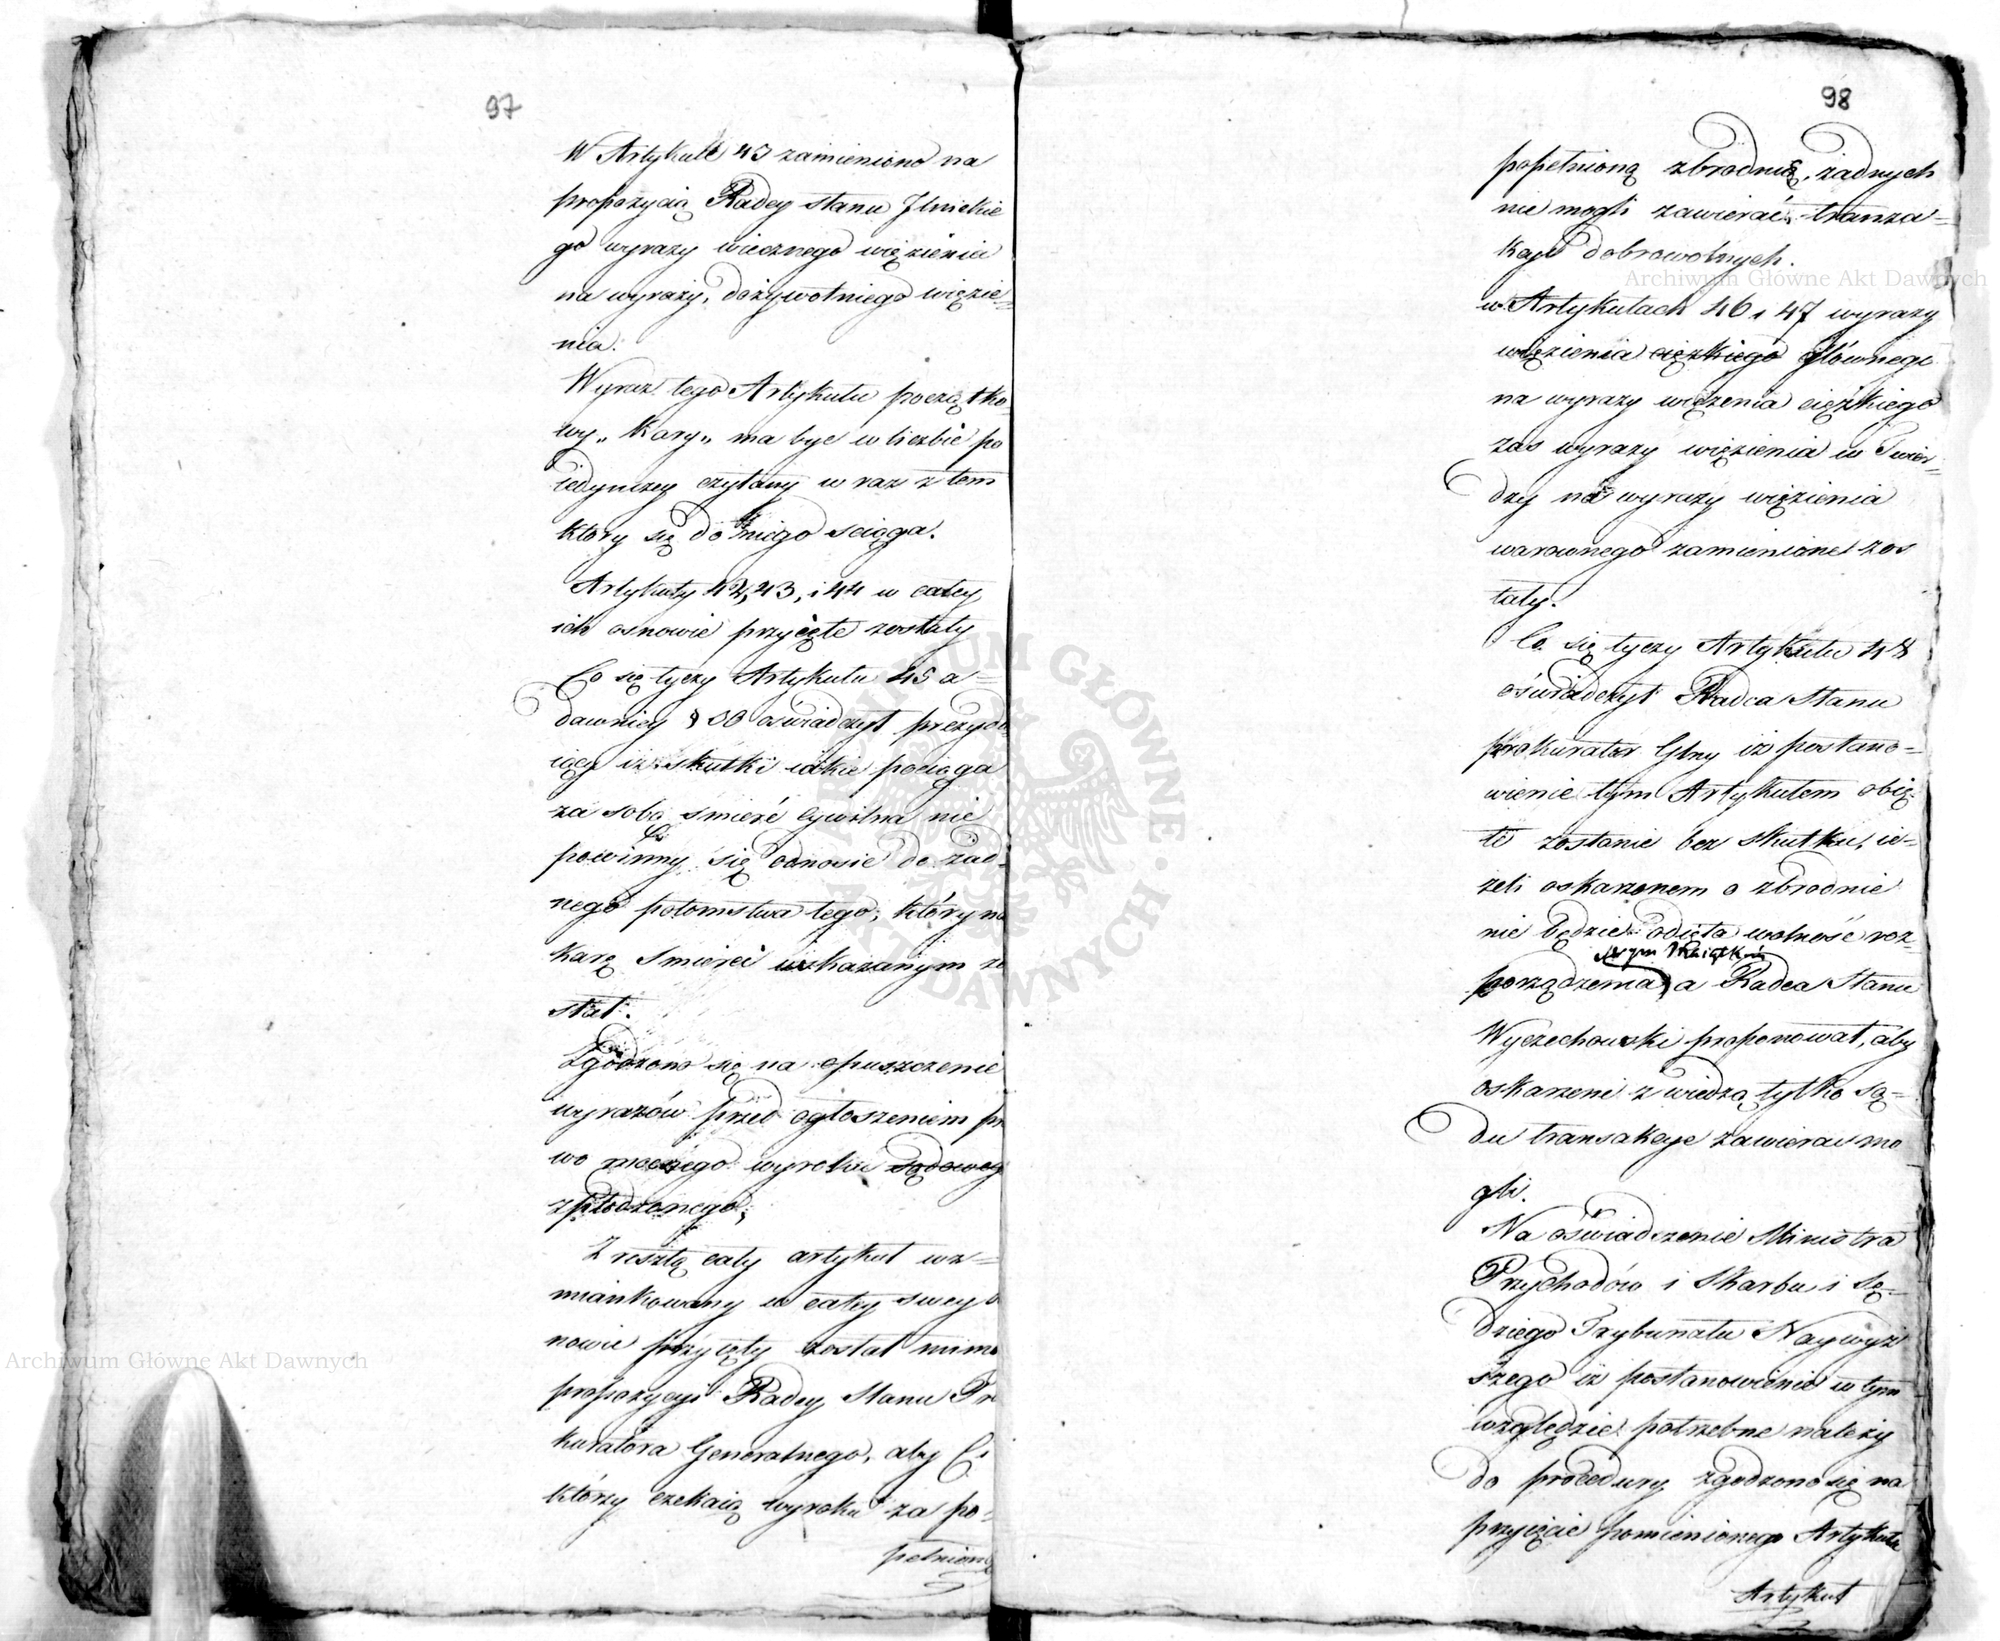 97
W Artykule 43 zamieniono na
propozycią Radcy stanu Ilnickie
go wyrazy wiecznego więzienia
na wyrazy, dożywotniego więzie=
nia.
Wyraz tego Artykułu początko
wy „Kary„ ma byc w liczbie po
iedynczey czytany w raz z tem
ktory się do niego sciąga.
Artykuły 42, 43, i 44 w całey
ich osnowie przyięte zostały
Co się tyczy Artykułu 45 a=
dawniey oświadczył prezydu
iący iż skutki iakie pociąga
za sobą śmierć cywilna nie
powinny się odnosić do żad=
nego potomstwa tego, który na
karę śmierci wskazanym zo
stał.
Zgodzono się na opuszczenie
wyrazów przed ogłoszeniem pra
wo mocnego wyroku sądowego
spłodzonego,
Z resztą cały artykuł wz=
miankowany w całey swey o
nowie przyięty został mimo
propozycyi Radcy Stanu Pro
kuratora Generalnego, aby Ci
którzy czekaią wyroku za po=
pełnioną
98
popełnioną zbrodnię, żadnych
nie mogli zawierać tranza=
kcyi dobrowolnych.
w Artykułach 46 i 47 wyrazy
więzienia ciężkiego głównego
na wyrazy więzenia ciężkiego
zas wyrazy więzienia w Twier=
dzy na wyrazy więzienia
warownego zamienione zos
tały.
Co się tyczy Artykułu 48
oświadczył Radca Stanu
prokurator Glny iż postano=
wienie tym Artykułem obię
te zostanie bez skutku, ie=
żeli oskarzonem o zbrodnie
nie będzie odięta wolność roz=
swym Maiątkiem
porządzenia a Radca Stanu
Wyczechowski proponował, aby
oskarzeni z wiedzą tylko są=
du transakcye zawierac mo
gli.
Na oświadczenie Ministra
Przychodów i Skarbu i Sę=
dziego Trybunału Naywyż
szego iż postanowienie w tym
względzie potrzebne należy
do procedury zgodzono się na
przyięcie pomienionego Artykułu
Artykuł
Archiwum Główne Akt Dawnych
Archiwum Główne Akt Dawnych
ARCHIWUM GŁÓWNE AKT DAWNYCH